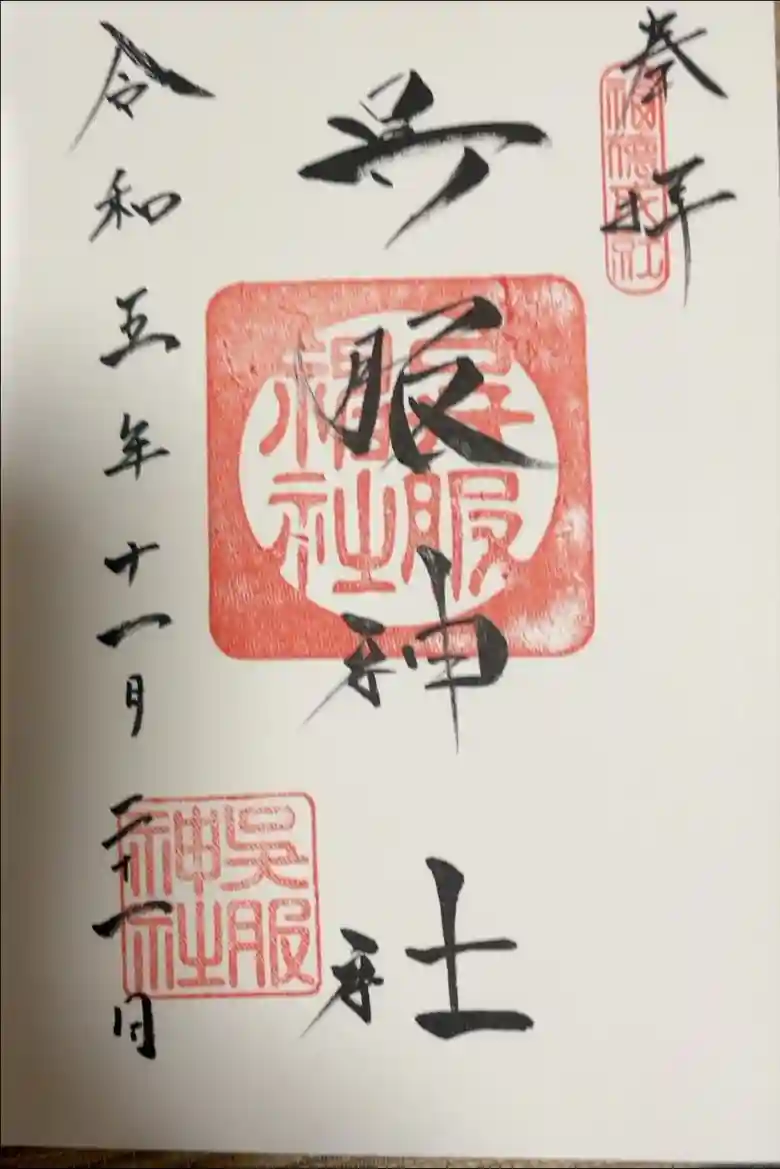 奉拝
呉服神社
吳服神社
令和五年十一月二十一日